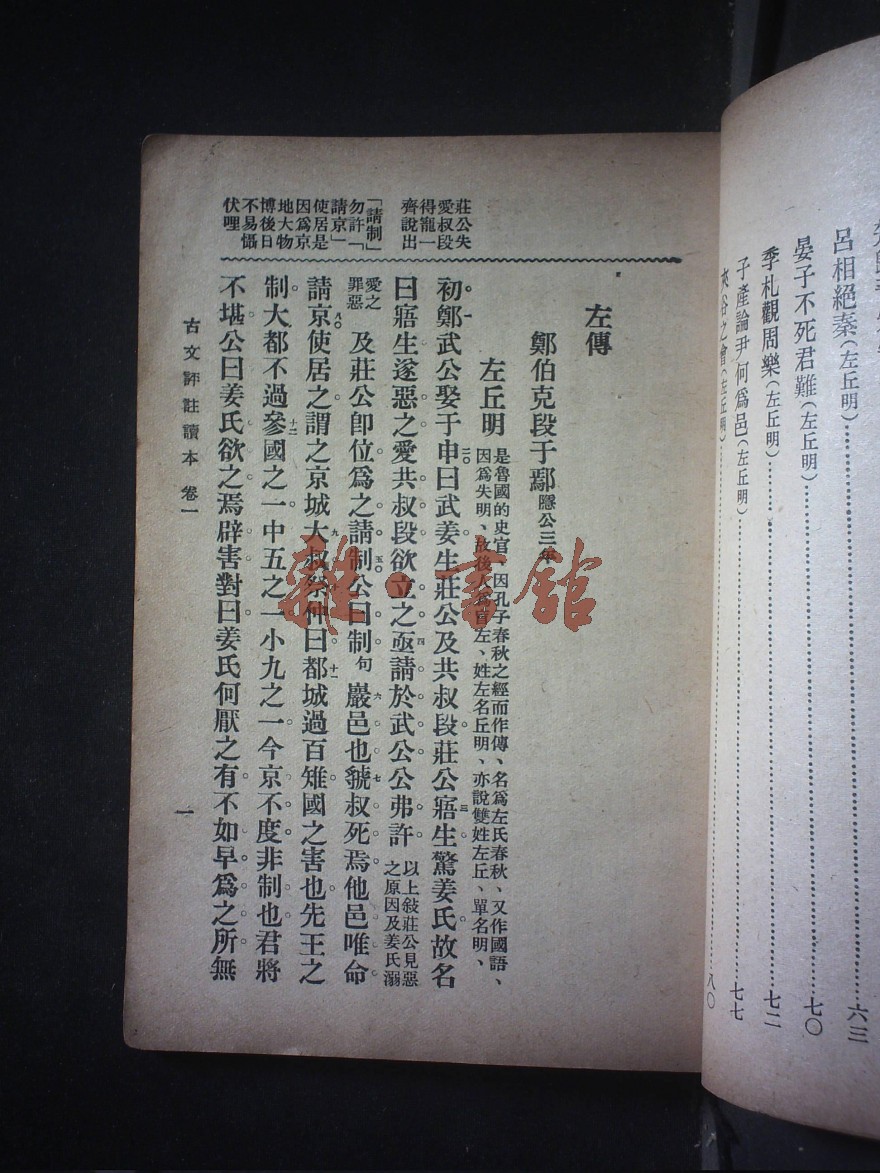 呂相絕秦(左丘明)……六三
晏子不死君難(左丘明)……七〇
季札觀周樂(左丘明)……七二
子產論尹何爲邑(左丘明)……七七
夾谷之會(左丘明)……八〇
莊公失
愛叔段
得寵一
齊說出
「請制」
勿許「
請京」
使居是
因爲京
地大物
博後日
不易懾
伏哩
左傳
鄭伯克段于鄢 隱公三年
左丘明 是魯國的史官、因孔子春秋之經而作傳、名爲左氏春秋、又作國語、
因爲失明、故後人稱盲左、姓左名丘明、亦說雙姓左丘、單名明、
初鄭武公娶于申曰武姜生莊公及共叔段莊公寤生驚姜氏故名
曰寤生遂惡之愛共叔段欲立之亟請於武公公弗許 以上敍莊公見惡之原因及姜氏溺
愛之罪惡 及莊公卽位爲之請制公曰制句巖邑也虢叔死焉他邑唯命
請京使居之謂之京城大叔祭仲曰都城過百雉國之害也先王之
制大都不過參國之一中五之一小九之一今京不度非制也君將
不堪公曰姜氏欲之焉辟害對曰姜氏何厭之有不如早爲之所無
古文評註讀本 卷一
一
雜·書館